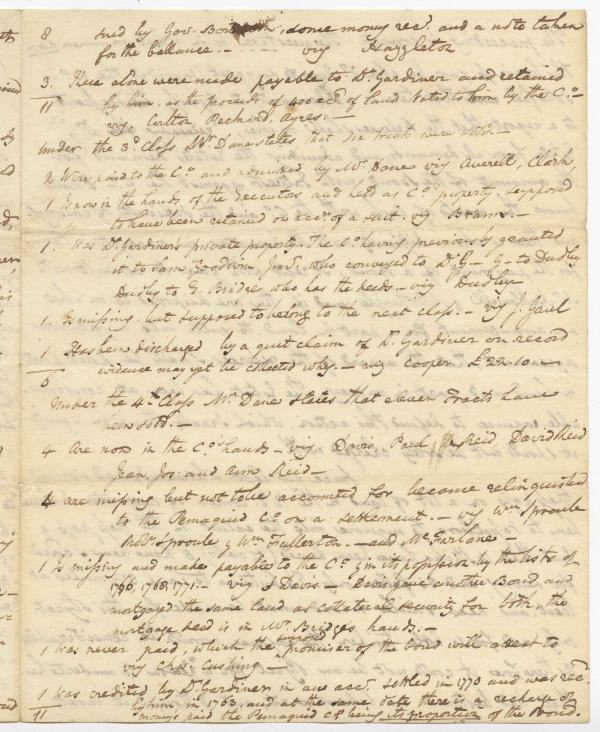 8 sued by Gov. Bowdoin, some money recd. and a note taken
for the ballance. — viz Hazzleton
3. These alone were made payable to Dr. Gardiner and retained
11 by him, as the proceeds of 400 acs. of land Voted to him by the Co. —
viz. Carlton, Rechard, Ayres. —
Under the 3d. Class Mr. Dane states that six tracts were sold. —
2 Were paid to the Co. and admitted by Mr. Dane viz Averell, Clark,
1 Is now in the hands of the Executors and held as Co. property. supposed
to have been retained on acct. of a suit. viz Brams. —
1. Was Dr. Gardiner's private property. The Co. having previously granted
it to Saml. Goodwin Junr. who conveyed to Dr. G — G — to Dudley
Dudley to E. Bridge who has the deeds. — viz Dudley
1. Is missing but supposed to belong to the next class. — viz J. Gaul
1 Has been discharged by a quit claim of Dr. Gardiner on record
6 evidence may yet be collected why. — viz Cooper £22.10. —
Under the 4th. Class Mr. Dane states that eleven Tracts have
been sold. —
4 Are now in the Co's hands — viz Davis, Reed, Reid David Reid
Jean, Jos: and Ann Reid —
4 are missing but not to be accounted for because relinquished
to the Pemaquid Co. on a settlement. — viz Wm Sproule
Robt. Sproule & Wm Fullerton. — and McFarlane —
1 Is missing and made payable to the Co. & in its possession by the lists of
1766, 1768, 1771. — viz J Davis — Davis gave another Bond and
mortgaged the same land as collateral security for both, the
mortgage deed is in Mr. Bridges hands. —
1 Was never paid, which the promiser of the bond will attest to
viz Chs. Cushing —
1 Was credited by Dr. Gardiner in an acct. settled in 1770 and was recd.
11 by him in 1763, and at the same date there is a recharge of
money's paid the Pemaquid Co. being its proportion of the Bond.